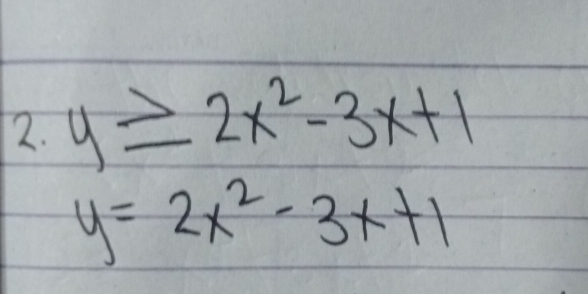 2. y ≥ 2x² - 3x + 1
y = 2x² - 3x + 1